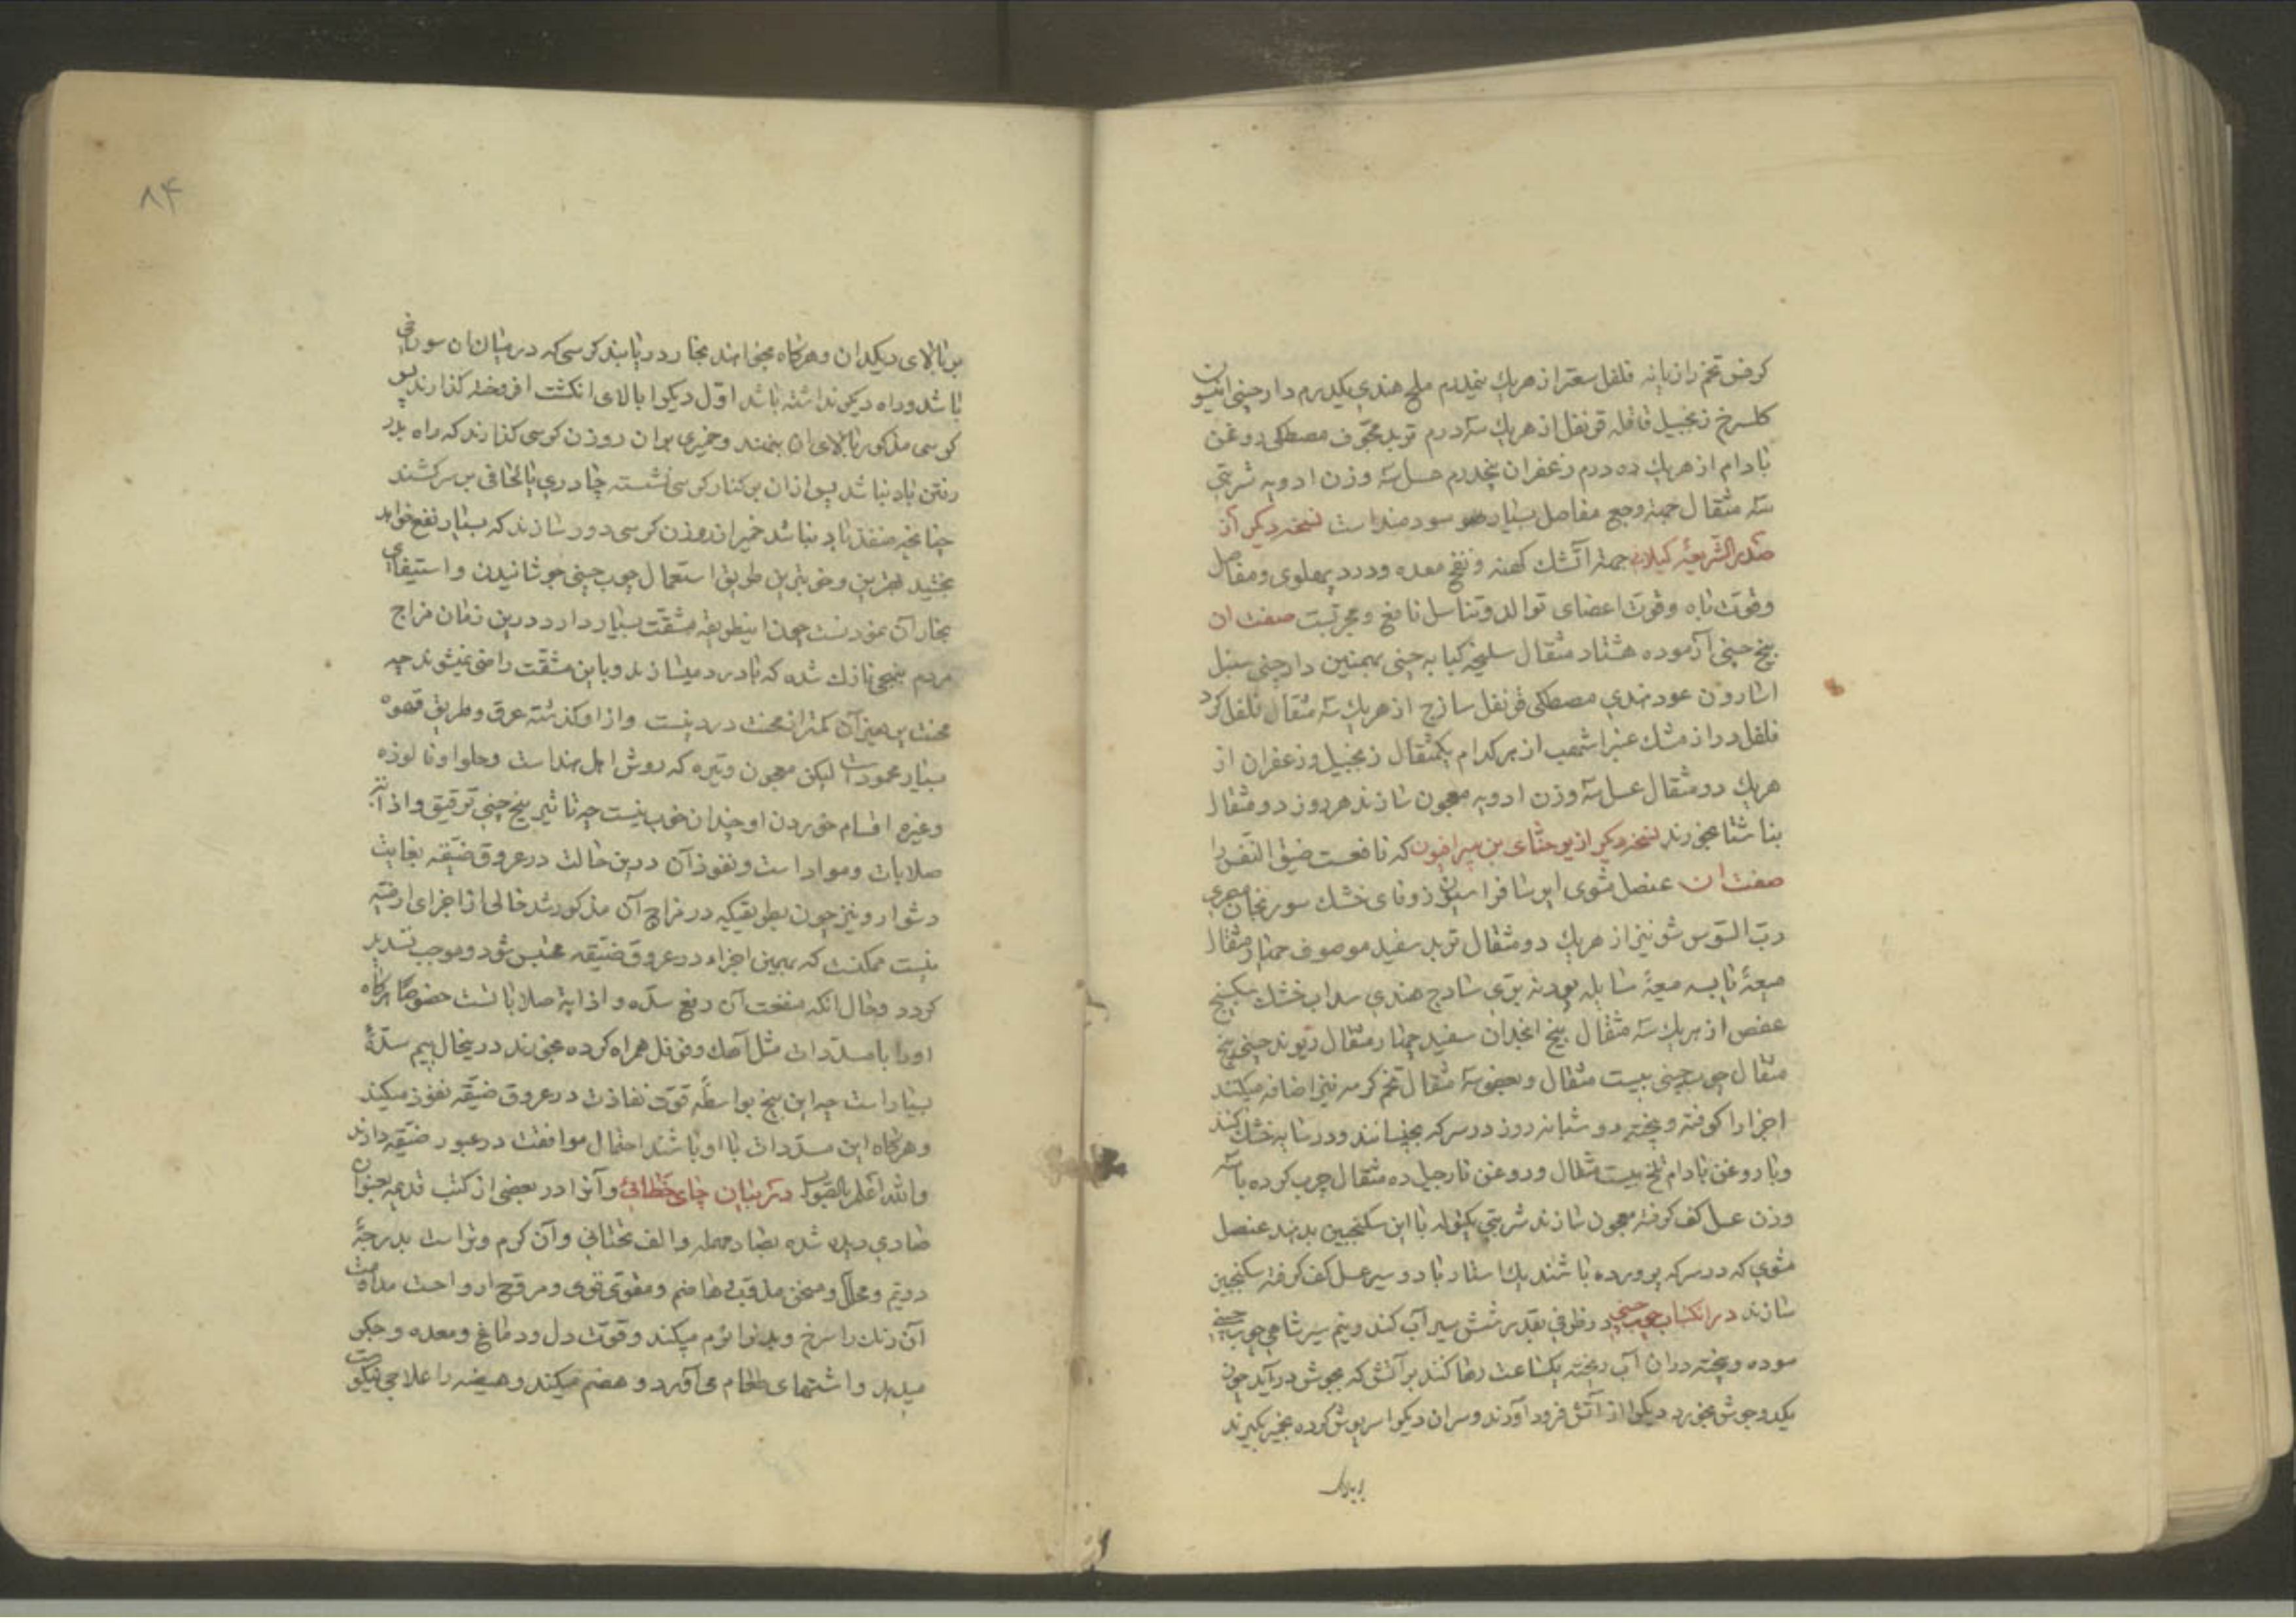 کرفس تخم رازیانه فلفل سعتر از هریك پنجدرم ملح هندی یکدرم دارچینی افتیمون
کلسرخ زنجبیل قاقله قرنفل از هریك سه درم تربد مجوف مصطکی روغن
بادام از هریك ده درم زعفران پنجدرم عسل سه وزن ادویه شربتی
سه مثقال جهة وجع مفاصل بسیار سودمند است نسخه دیکر از
صدر الشریعه کیلانی جهة آتشك کهنه و نفخ معده و درد پهلوی و مفاصل
و قوت باه و قوت اعضای توالد و تناسل نافع و مجربست صفت ان
بیخ چینی آزموده هشتاد مثقال سلیخه کبابه چینی بهمنین دارچینی سنبل
اسارون عود هندی مصطکی قرنفل ساذج از هریك سه مثقال فلفل کرد
فلفل دراز مشك عنبر اشهب از هر کدام یکمثقال زنجبیل و زعفران از
هریك دو مثقال عسل سه وزن ادویه معجون سازند هر روز دو مثقال
بناشتا بخورند نسخه دیکر از یوحنای بن سرافیون که نافعست ضیق النفس را
صفت ان عنصل مشوی ایرسا فراسیون زوفای خشك سورنجان مصری
رب السوس شونیز از هریك دو مثقال تربد سفید موصوف چهار مثقال
میعهٔ یابسه میعهٔ سایله پودنه بری ساذج هندی سداب خشك سکبینج
عفص از هریك سه مثقال بیخ انجدان سفید چهار مثقال ریوند چینی پنج
مثقال چوب چینی بیست مثقال و بعضی سه مثقال تخم کرسه نیز اضافه میکنند
اجزا را کوفته و بیخته دو شبانه روز در سرکه بخیسانند و در سایه خشك کنند
و با روغن بادام تلخ بیست مثقال و روغن نارجیل ده مثقال چرب کرده با سه
وزن عسل کف کرفته معجون سازند شربتی یکتوله با این سکنجبین بدهند عنصل
مشوی که در سرکه پرورده باشند یك استار با دو سیر عسل کف کرفته سکنجبین
سازند در انکباب چوب چینی در ظرفی بقدر شش سیر آب کنند و نیم سیر شاهی چوب چینی
سوده و بیخته دران آب ریخته یکساعت رها کنند بر آتش که بجوش درآید چون
یکدو جوش بخورد دیکرا از آتش فرود آورند و سران دیکرا سرپوش کرده بخمیر بکیرند
بر بالای دیکدان و هرکاه بخواهند بخار دریابند کرسی که در میان ان سوراخی
باشد و راه دیکر نداشته باشد اول دیکرا بالای انکشت افروخته کذارند پس
کرسی مذکور بالای ان بنهند و خمیری بران روزن کرسی کذارند که راه بدر
رفتن باد نباشد پس ازان بر کنار کرسی نشسته چادری یا لحافی بر سر کشند
چنانچه منفذ باد نباشد خمیر ازروزن کرسی دور سازند که بسیار نفع خواهد
بخشید بهترین و خوبترین طریق استعمال چوب چینی جوشانیدن و استیفای
بخار آن نمودنست چون اینطریقه مشقت بسیار دارد درین زمان مزاج
مردم بنهجی نازك شده که با درد میسازند و باین مشقت راضی نمیشوند چه
محنت پرهیز آن کمتر از محنت درد نیست و از او کذشته عرق و طریق قهوه
بسیار محمود است لیکن معجون وتیره که روش اهل هند است و حلوا و فالوذه
و غیره اقسام خوردن او چندان خوب نیست چه تاثیر بیخ چینی ترقیق و اذابه
صلابات و مواد است و نفوذ آن درین حالت در عروق ضیقه بغایت
دشوار و نیز چون بطریقیکه در مزاج آن مذکور شد خالی از اجزای ارضیه
نیست ممکنست که همین اجزاء در عروق ضیقه محتبس شود و موجب تسدید
کردد و حال انکه منفعت آن دفع سده و اذابهٔ صلاباتست خصوصًا هرکاه
اورا با مسددات مثل آهك و فوفل همراه کرده بخورند درینحال بیم سدهٔ
بسیار است چه این بیخ بواسطهٔ قوت نفاذت در عروق ضیقه نفوذ میکند
و هرکاه این مسددات با او باشند احتمال موافقت در عبور ضیقه دارند
والله اعلم بالصواب در بیان چای خطائی و آنرا در بعضی از کتب قدیمه بعنوان
صادی دیده شده بصاد مهمله و الف تحتانی و آن کرم و تر است بدرجهٔ
دویم و محلل و مسخن مذقب هاضم و مقوی قوی و مروح ارواحت مداومت
آن رنك را سرخ و بدنرا نرم میکند و قوت دل و دماغ و معده و جکر
میدهد و اشتهای طعام می آورد و هضم میکند و هیضه را علاجی نیکوست